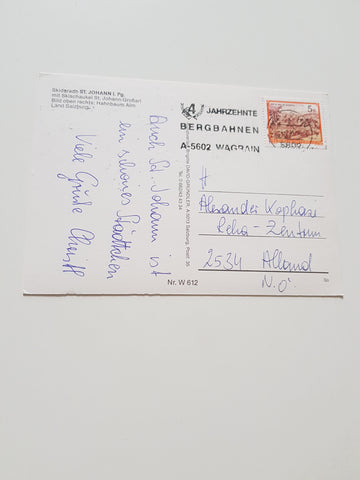 Skiparadies ST. JOHANN i. Pg.
mit Skischaukel St. Johann-Großarl
Bild oben rechts: Hahnbaum Alm
Land Salzburg
4 JAHRZEHNTE
BERGBAHNEN
A-5602 WAGRAIN
5
Auch St. Johann ist
ein schönes Städtchen
Viele Grüße
A-5013 Salzburg, Postf. 35
Alexander
Reha-Zentrum
2534 Alland
N.Ö.
Nr. W 612